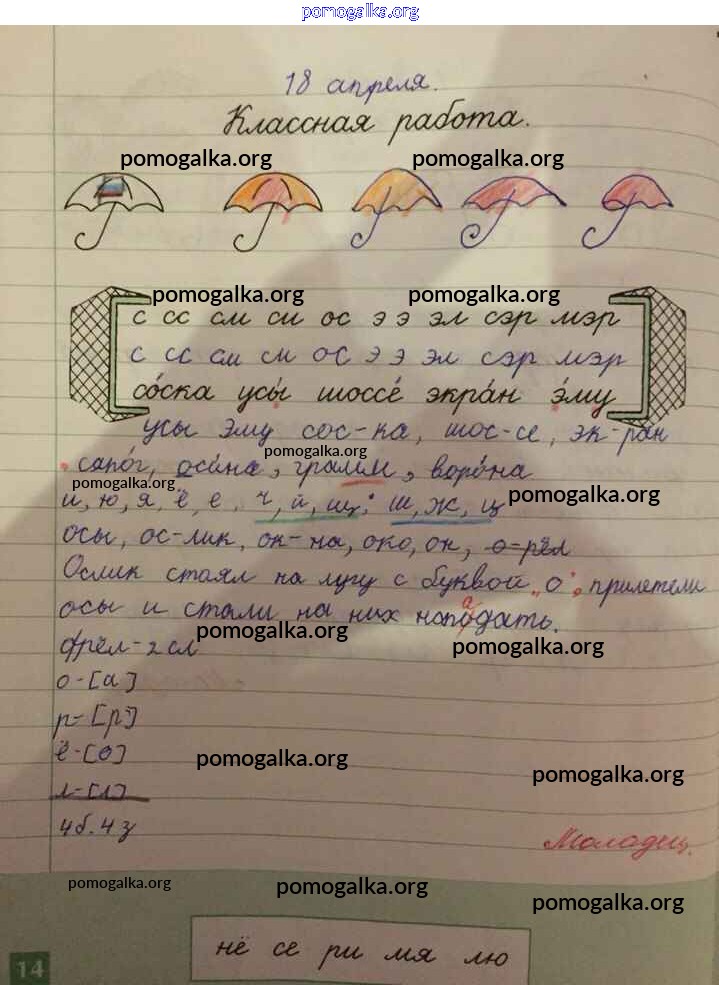 pomogalka.org
18 апреля.
Классная работа.
pomogalka.org pomogalka.org
pomogalka.org pomogalka.org
с сс см си ос э э эл сэр мэр
с сс см си ос э э эл сэр мэр
со́ска усы́ шоссе́ экра́н э́му
усы эму сос-ка, шос-се, эк-ран
pomogalka.org
сапо́г, оси́на, грамм, воро́на
pomogalka.org
и, ю, я, ё, е, ч, й, щ; ш, ж, ц
pomogalka.org
осы, ос-лик, ок-на, око, он, о-рёл
Ослик стоял на лугу с буквой "о", прилетели
осы и стали на них нападать.
pomogalka.org
орёл - 2 сл
pomogalka.org
о-[а]
р-[р']
ё-[о]
pomogalka.org
pomogalka.org
л-[л]
4 б. 4 з
Молодец.
pomogalka.org pomogalka.org
pomogalka.org
нё се ри мя лю
14